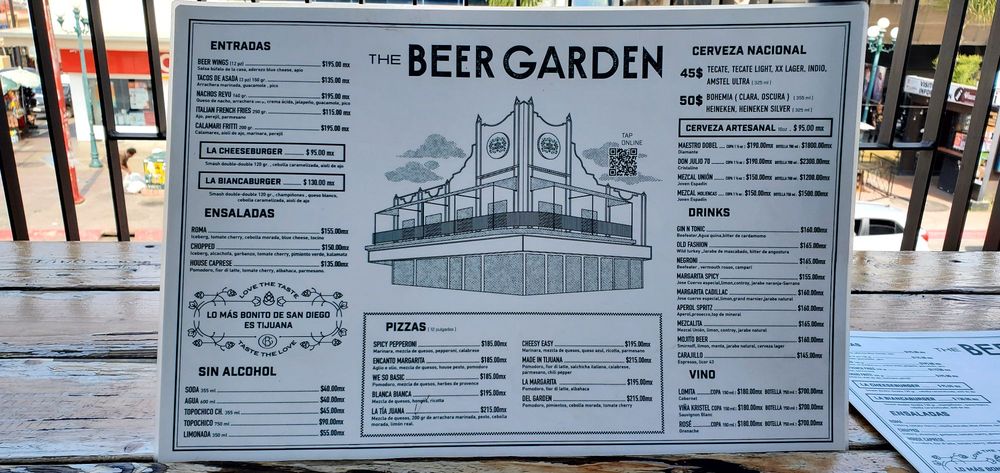 ENTRADAS
BEER WINGS (12 pz) $195.00 mx
Salsa búfalo de la casa, aderezo blue cheese, apio
TACOS DE ASADA (3 pz) 150 gr. $135.00 mx
Arrachera marinada, guacamole, pico
NACHOS REVU 160 gr. $195.00 mx
Queso de nacho, arrachera, crema ácida, jalapeño, guacamole, pico
ITALIAN FRENCH FRIES 250 gr. $115.00 mx
Ajo, perejil, parmesano
CALAMARI FRITTI 200 gr. $195.00 mx
Calamares, aioli de ajo, marinara, perejil
LA CHEESEBURGER $ 95.00 mx
Smash double-double 120 gr., cebolla caramelizada, aioli de ajo
LA BIANCABURGER $ 130.00 mx
Smash double-double 120 gr., champiñones, queso blanco,
cebolla caramelizada, aioli de ajo
ENSALADAS
ROMA $155.00mx
Iceberg, tomate cherry, cebolla morada, blue cheese, tocino
CHOPPED $150.00mx
Iceberg, alcachofa, garbanzo, tomate cherry, pimiento verde, kalamata
HOUSE CAPRESE $135.00mx
Pomodoro, fior di latte, tomate cherry, albahaca, parmesano.
LOVE THE TASTE
LO MÁS BONITO DE SAN DIEGO
ES TIJUANA
B
TASTE THE LOVE
SIN ALCOHOL
SODA 355 ml $40.00mx
AGUA 600 ml $40.00mx
TOPOCHICO CH. 355 ml $45.00mx
TOPOCHICO 750 ml $90.00mx
LIMONADA 350 ml $55.00mx
THE BEER GARDEN
TAP
ONLINE
PIZZAS (12 pulgadas)
SPICY PEPPERONI $185.00mx
Marinara, mezcla de quesos, pepperoni, calabrese
ENCANTO MARGARITA $185.00mx
Aglio e olio, mezcla de quesos, house pesto, pomodoro
WE SO BASIC $185.00mx
Pomodoro, mezcla de quesos, herbes de provence
BLANCA BIANCA $195.00mx
Mezcla de quesos, hongos, ricotta
LA TÍA JUANA $215.00mx
Mezcla de quesos, 200 gr de arrachera marinada, pesto, cebolla
morada, limón real.
CHEESY EASY $195.00mx
Marinara, mezcla de quesos, queso azul, ricotta, parmesano
MADE IN TIJUANA $215.00mx
Pomodoro, fior di latte, salchicha italiana, calabrese,
parmesano, chili pepper
LA MARGARITA $195.00mx
Pomodoro, fior di latte, albahaca
DEL GARDEN $215.00mx
Pomodoro, pimientos, cebolla morada, tomate cherry
CERVEZA NACIONAL
45$ TECATE, TECATE LIGHT, XX LAGER, INDIO,
AMSTEL ULTRA (325 ml)
50$ BOHEMIA ( CLARA, OSCURA ) (355 ml)
HEINEKEN, HEINEKEN SILVER (325 ml)
CERVEZA ARTESANAL 16oz. $ 95.00 mx
MAESTRO DOBEL COPA 1 ½ oz : $190.00mx BOTELLA 700 ml : $1800.00mx
Diamante
DON JULIO 70 COPA 1 ½ oz : $190.00mx BOTELLA 700 ml : $2300.00mx
Cristalino
MEZCAL UNIÓN COPA 1 ½ oz : $150.00mx BOTELLA 700 ml : $1200.00mx
Joven Espadín
MEZCAL MOLIENCAS COPA 1 ½ oz : $150.00mx BOTELLA 700 ml : $1500.00mx
Joven Espadín
DRINKS
GIN N TONIC $160.00mx
Beefeater, Agua quina, bitter de cardamomo
OLD FASHION $165.00mx
Wild turkey, jarabe de mascabado, bitter de angostura
NEGRONI $165.00mx
Beefeater, vermouth rosso, campari
MARGARITA SPICY $155.00mx
Jose Cuervo especial, limon, controy, jarabe naranja-Serrano
MARGARITA CADILLAC $160.00mx
Jose cuervo especial, limon, grand marnier, jarabe natural
APEROL SPRITZ $160.00mx
Aperol, prosecco, top de mineral
MEZCALITA $165.00mx
Mezcal Unión, limon, controy, jarabe natural
MOJITO BEER $160.00mx
Smirnoff, limon, menta, jarabe natural, cerveza lager
CARAJILLO $145.00mx
Espresso, licor 43
VINO
LOMITA COPA 150 ml : $180.00mx BOTELLA 750 ml : $700.00mx
Cabernet
VIÑA KRISTEL COPA 150 ml : $180.00mx BOTELLA 750 ml : $700.00mx
Sauvignon Blanc
ROSÉ COPA 150 ml : $180.00mx BOTELLA 750 ml : $700.00mx
Grenache
THE BE
LA CHEESEBURGER
LA BIANCABURGER
ENSALADAS
ROMA
CHOPPED
HOUSE CAPRESE
LO MÁS BONITO DE SAN